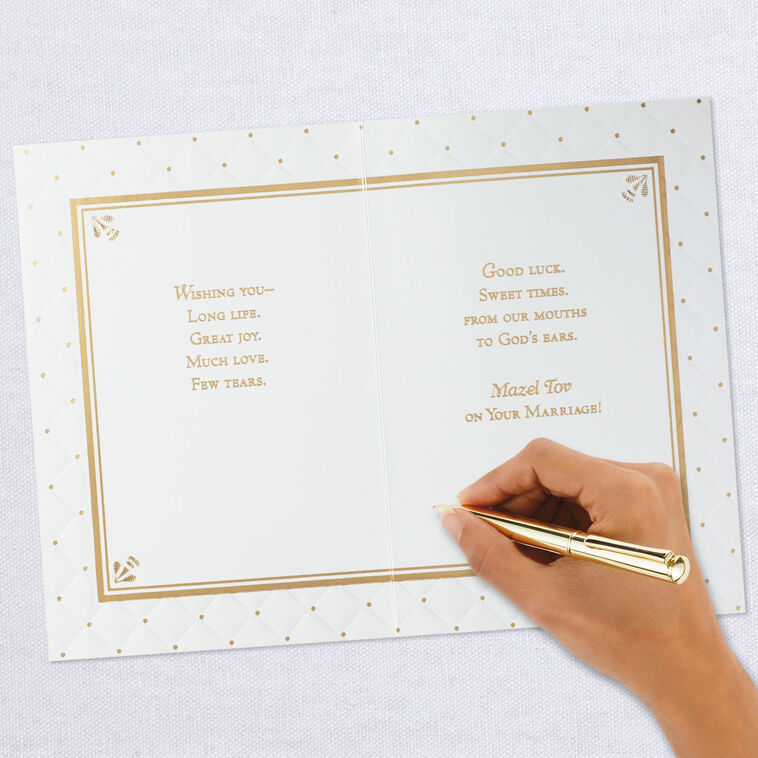 Wishing you—
Long life.
Great joy.
Much love.
Few tears.
Good luck.
Sweet times.
from our mouths
to God's ears.
Mazel Tov
on Your Marriage!